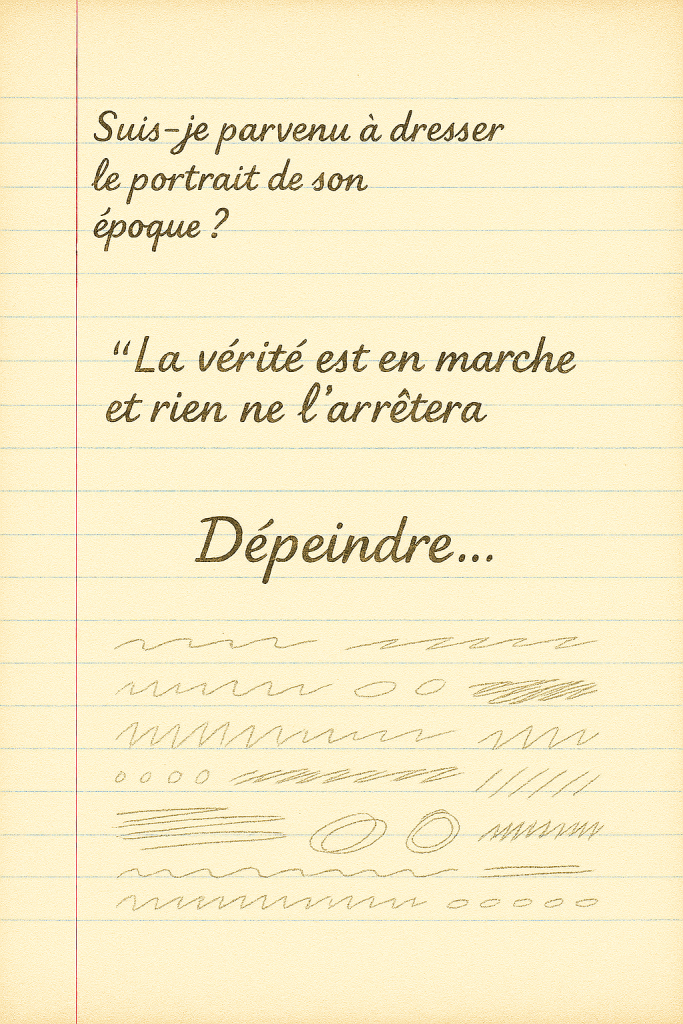 Suis-je parvenu à dresser
le portrait de son
époque ?
“La vérité est en marche
et rien ne l’arrêtera
Dépeindre...